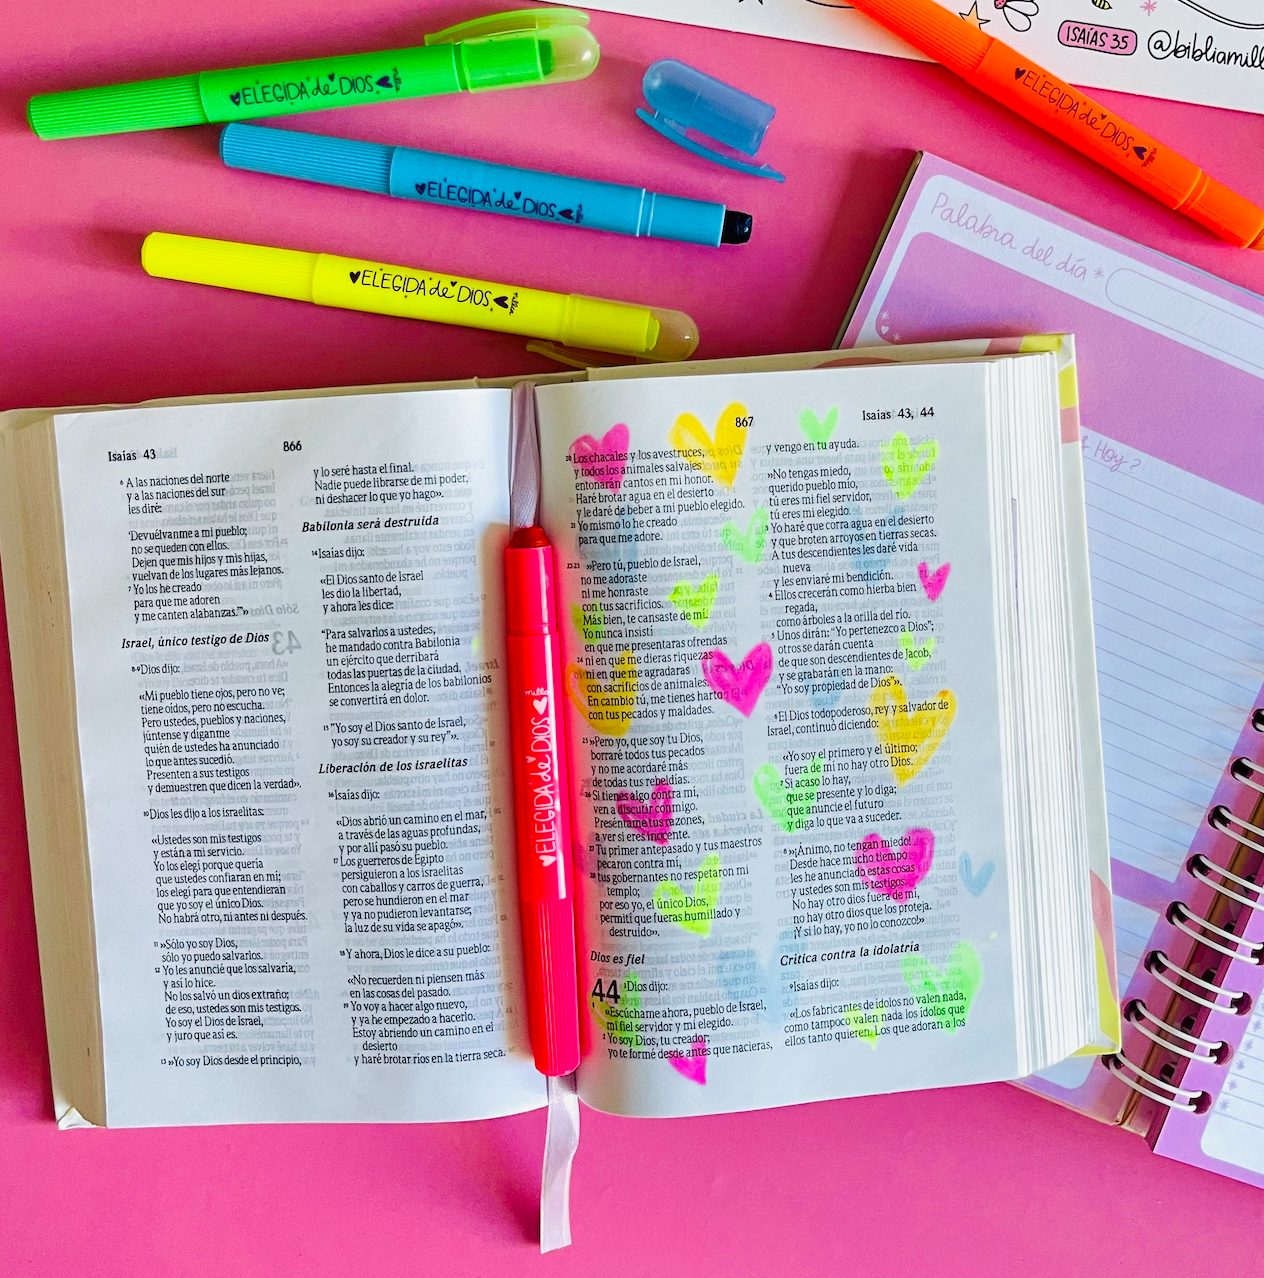 ISAÍAS 35
@bibliamill
ELEGIDA de DIOS
ELEGIDA de DIOS milla
ELEGIDA de DIOS
ELEGIDA de DIOS milla
Palabra del día
Hoy?
Isaías 43
866
6 A las naciones del norte
y a las naciones del sur
les diré:
‘Devuélvanme a mi pueblo;
no se queden con ellos.
Dejen que mis hijos y mis hijas,
vuelvan de los lugares más lejanos.
7 Yo los he creado
para que me adoren
y me canten alabanzas.”»
Israel, único testigo de Dios
8-9 Dios dijo:
«Mi pueblo tiene ojos, pero no ve;
tiene oídos, pero no escucha.
Pero ustedes, pueblos y naciones,
júntense y díganme
quién de ustedes ha anunciado
lo que antes sucedió.
Presenten a sus testigos
y demuestren que dicen la verdad».
10 Dios les dijo a los israelitas:
«Ustedes son mis testigos
y están a mi servicio.
Yo los elegí porque quería
que ustedes confiaran en mí;
los elegí para que entendieran
que yo soy el único Dios.
No habrá otro, ni antes ni después.
11 »Sólo yo soy Dios,
sólo yo puedo salvarlos.
12 Yo les anuncié que los salvaría,
y así lo hice.
No los salvó un dios extraño;
de eso, ustedes son mis testigos.
Yo soy el Dios de Israel,
y juro que así es.
13 »Yo soy Dios desde el principio,
y lo seré hasta el final.
Nadie puede librarse de mi poder,
ni deshacer lo que yo hago».
Babilonia será destruida
14 Isaías dijo:
«El Dios santo de Israel
les dio la libertad,
y ahora les dice:
“Para salvarlos a ustedes,
he mandado contra Babilonia
un ejército que derribará
todas las puertas de la ciudad.
Entonces la alegría de los babilonios
se convertirá en dolor.
15 ”Yo soy el Dios santo de Israel,
yo soy su creador y su rey”».
Liberación de los israelitas
16 Isaías dijo:
«Dios abrió un camino en el mar,
a través de las aguas profundas,
y por allí pasó su pueblo.
17 Los guerreros de Egipto
persiguieron a los israelitas
con caballos y carros de guerra,
pero se hundieron en el mar
y ya no pudieron levantarse;
¡la luz de su vida se apagó!».
18 Y ahora, Dios le dice a su pueblo:
«No recuerden ni piensen más
en las cosas del pasado.
19 Yo voy a hacer algo nuevo,
y ya he empezado a hacerlo.
Estoy abriendo un camino en el
desierto
y haré brotar ríos en la tierra seca.
milla
ELEGIDA de DIOS
867
Isaías 43, 44
20 Los chacales y los avestruces,
y todos los animales salvajes
entonarán cantos en mi honor.
Haré brotar agua en el desierto
y le daré de beber a mi pueblo elegido.
21 Yo mismo lo he creado
para que me adore.
22-23 »Pero tú, pueblo de Israel,
no me adoraste
ni me honraste
con tus sacrificios.
Más bien, te cansaste de mí.
Yo nunca insistí
en que me presentaras ofrendas
24 ni en que me dieras riquezas
ni en que me agradaras
con sacrificios de animales.
En cambio tú, me tienes harto
con tus pecados y maldades.
25 »Pero yo, que soy tu Dios,
borraré todos tus pecados
y no me acordaré más
de todas tus rebeldías.
26 Si tienes algo contra mí,
ven a discutir conmigo.
Preséntame tus razones,
a ver si eres inocente.
27 Tu primer antepasado y tus maestros
pecaron contra mí,
28 tus gobernantes no respetaron mi
templo;
por eso yo, el único Dios,
permití que fueras humillado y
destruido».
Dios es fiel
44 1 Dios dijo:
«Escúchame ahora, pueblo de Israel,
mi fiel servidor y mi elegido.
2 Yo soy Dios, tu creador;
yo te formé desde antes que nacieras,
y vengo en tu ayuda.
»No tengas miedo,
querido pueblo mío,
tú eres mi fiel servidor,
tú eres mi elegido.
3 Yo haré que corra agua en el desierto
y que broten arroyos en tierras secas.
A tus descendientes les daré vida
nueva
y les enviaré mi bendición.
4 Ellos crecerán como hierba bien
regada,
como árboles a la orilla del río.
5 Unos dirán: “Yo pertenezco a Dios”;
otros se darán cuenta
de que son descendientes de Jacob,
y se grabarán en la mano:
“Yo soy propiedad de Dios”».
6 El Dios todopoderoso, rey y salvador de
Israel, continuó diciendo:
«Yo soy el primero y el último;
fuera de mí no hay otro Dios.
7 Si acaso lo hay,
que se presente y lo diga;
que anuncie el futuro
y diga lo que va a suceder.
8 »¡Ánimo, no tengan miedo!
Desde hace mucho tiempo
les he anunciado estas cosas
y ustedes son mis testigos.
No hay otro dios fuera de mí,
no hay otro dios que los proteja.
¡Y si lo hay, yo no lo conozco!»
Crítica contra la idolatría
9 Isaías dijo:
«Los fabricantes de ídolos no valen nada,
como tampoco valen nada los ídolos que
ellos tanto quieren. Los que adoran a los